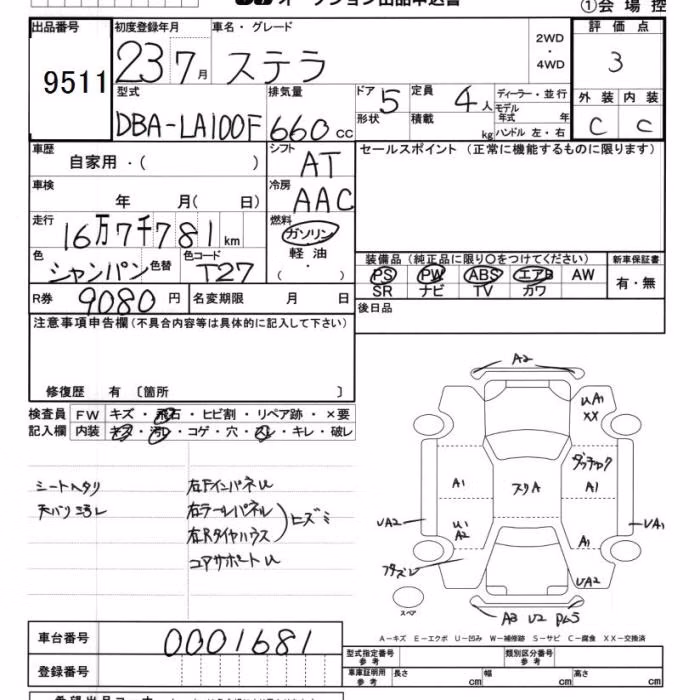 オークション出品申込書
①会場控
出品番号 初度登録年月 車名・グレード 2WD ・ 4WD 評価点
9511 23 7月 ステラ 3
型式 排気量 ドア 5 定員 4人 ディーラー・並行 外装 内装
DBA-LA100F 660cc 形状 積載 kg モデル年式 年 ハンドル 左・右 C C
車歴 自家用・( ) シフト AT セールスポイント (正常に機能するものに限ります)
車検 年 月( 日) 冷房 AAC
走行 16万7千781km 燃料 ガソリン
軽油
( ・ )
色 シャンパン 色替 色コード T27
装備品 (純正品に限り○をつけてください) 新車保証書
PS PW ABS エアB AW 有・無
SR ナビ TV カワ
R券 9080円 名変期限 月 日 後日品
注意事項申告欄 (不具合内容等は具体的に記入して下さい)
修復歴 有 〔箇所 〕
検査員 FW キズ・飛石・ヒビ割・リペア跡・×要
記入欄 内装 キズ・汚レ・コゲ・穴・スレ・キレ・破レ
シートヘタリ 右FインパネU
天バリ汚レ 右テールパネル
右Rタイヤハウス ヒズミ
コアサポートU
A2
UA1
XX
ダッチャク
A1 スリA A1
UA2 U1 A2 UA1
A1
フタズレ
UA2
スペア
A3 U2
A-キズ E-エクボ U-凹み W-補修跡 S-サビ C-腐食 XX-交換済
車台番号 0001681
型式指定番号 参考 類別区分番号 参考
登録番号 車庫証明用 参考 長さ cm 幅 cm 高さ cm